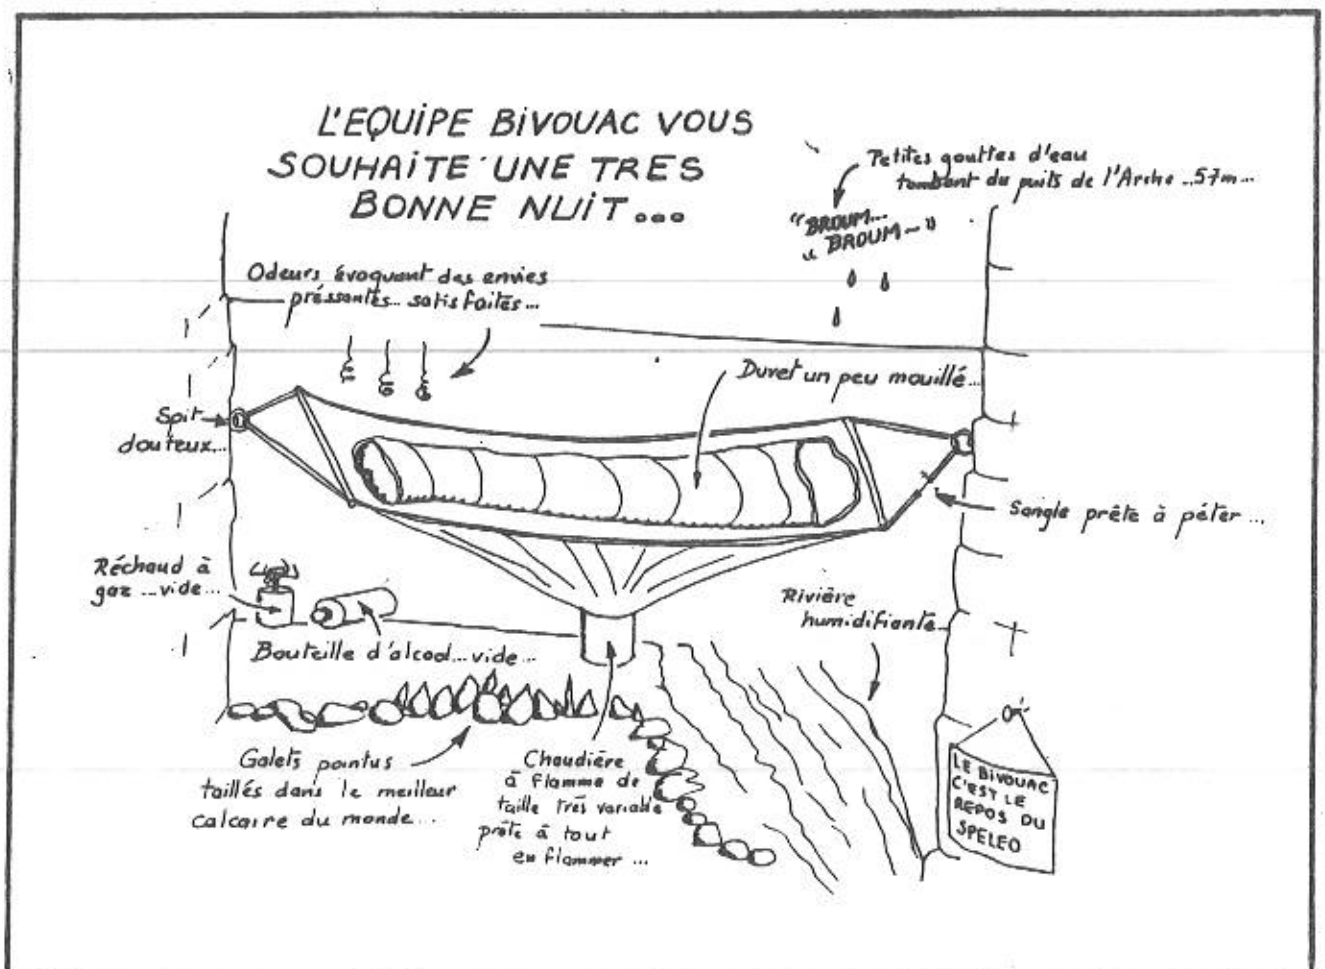 L'EQUIPE BIVOUAC VOUS
SOUHAITE UNE TRES
BONNE NUIT...
Petites gouttes d'eau
tombant du puits de l'Arche...57m...
"BROUM...
BROUM~"
Odeurs évoquant des envies
préssantes... satisfaites...
Duvet un peu mouillé...
Spit
douteux...
Sangle prête à péter...
Réchaud à
gaz...vide...
Bouteille d'alcool...vide...
Rivière
humidifiante...
Galets pointus
taillés dans le meilleur
calcaire du monde...
Chaudière
à flamme de
taille très variable
prête à tout
enflammer...
LE BIVOUAC
C'EST LE
REPOS DU
SPELEO